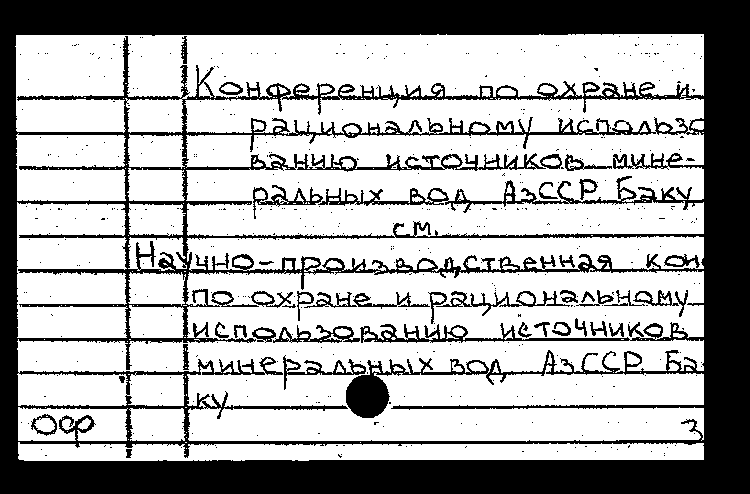 Конференция по охране и
рациональному использо
ванию источников мине-
ральных вод АзССР. Баку.
см.
Научно-производственная кон
по охране и рациональному
использованию источников
минеральных вод АзССР. Ба-
ку
Оф 3